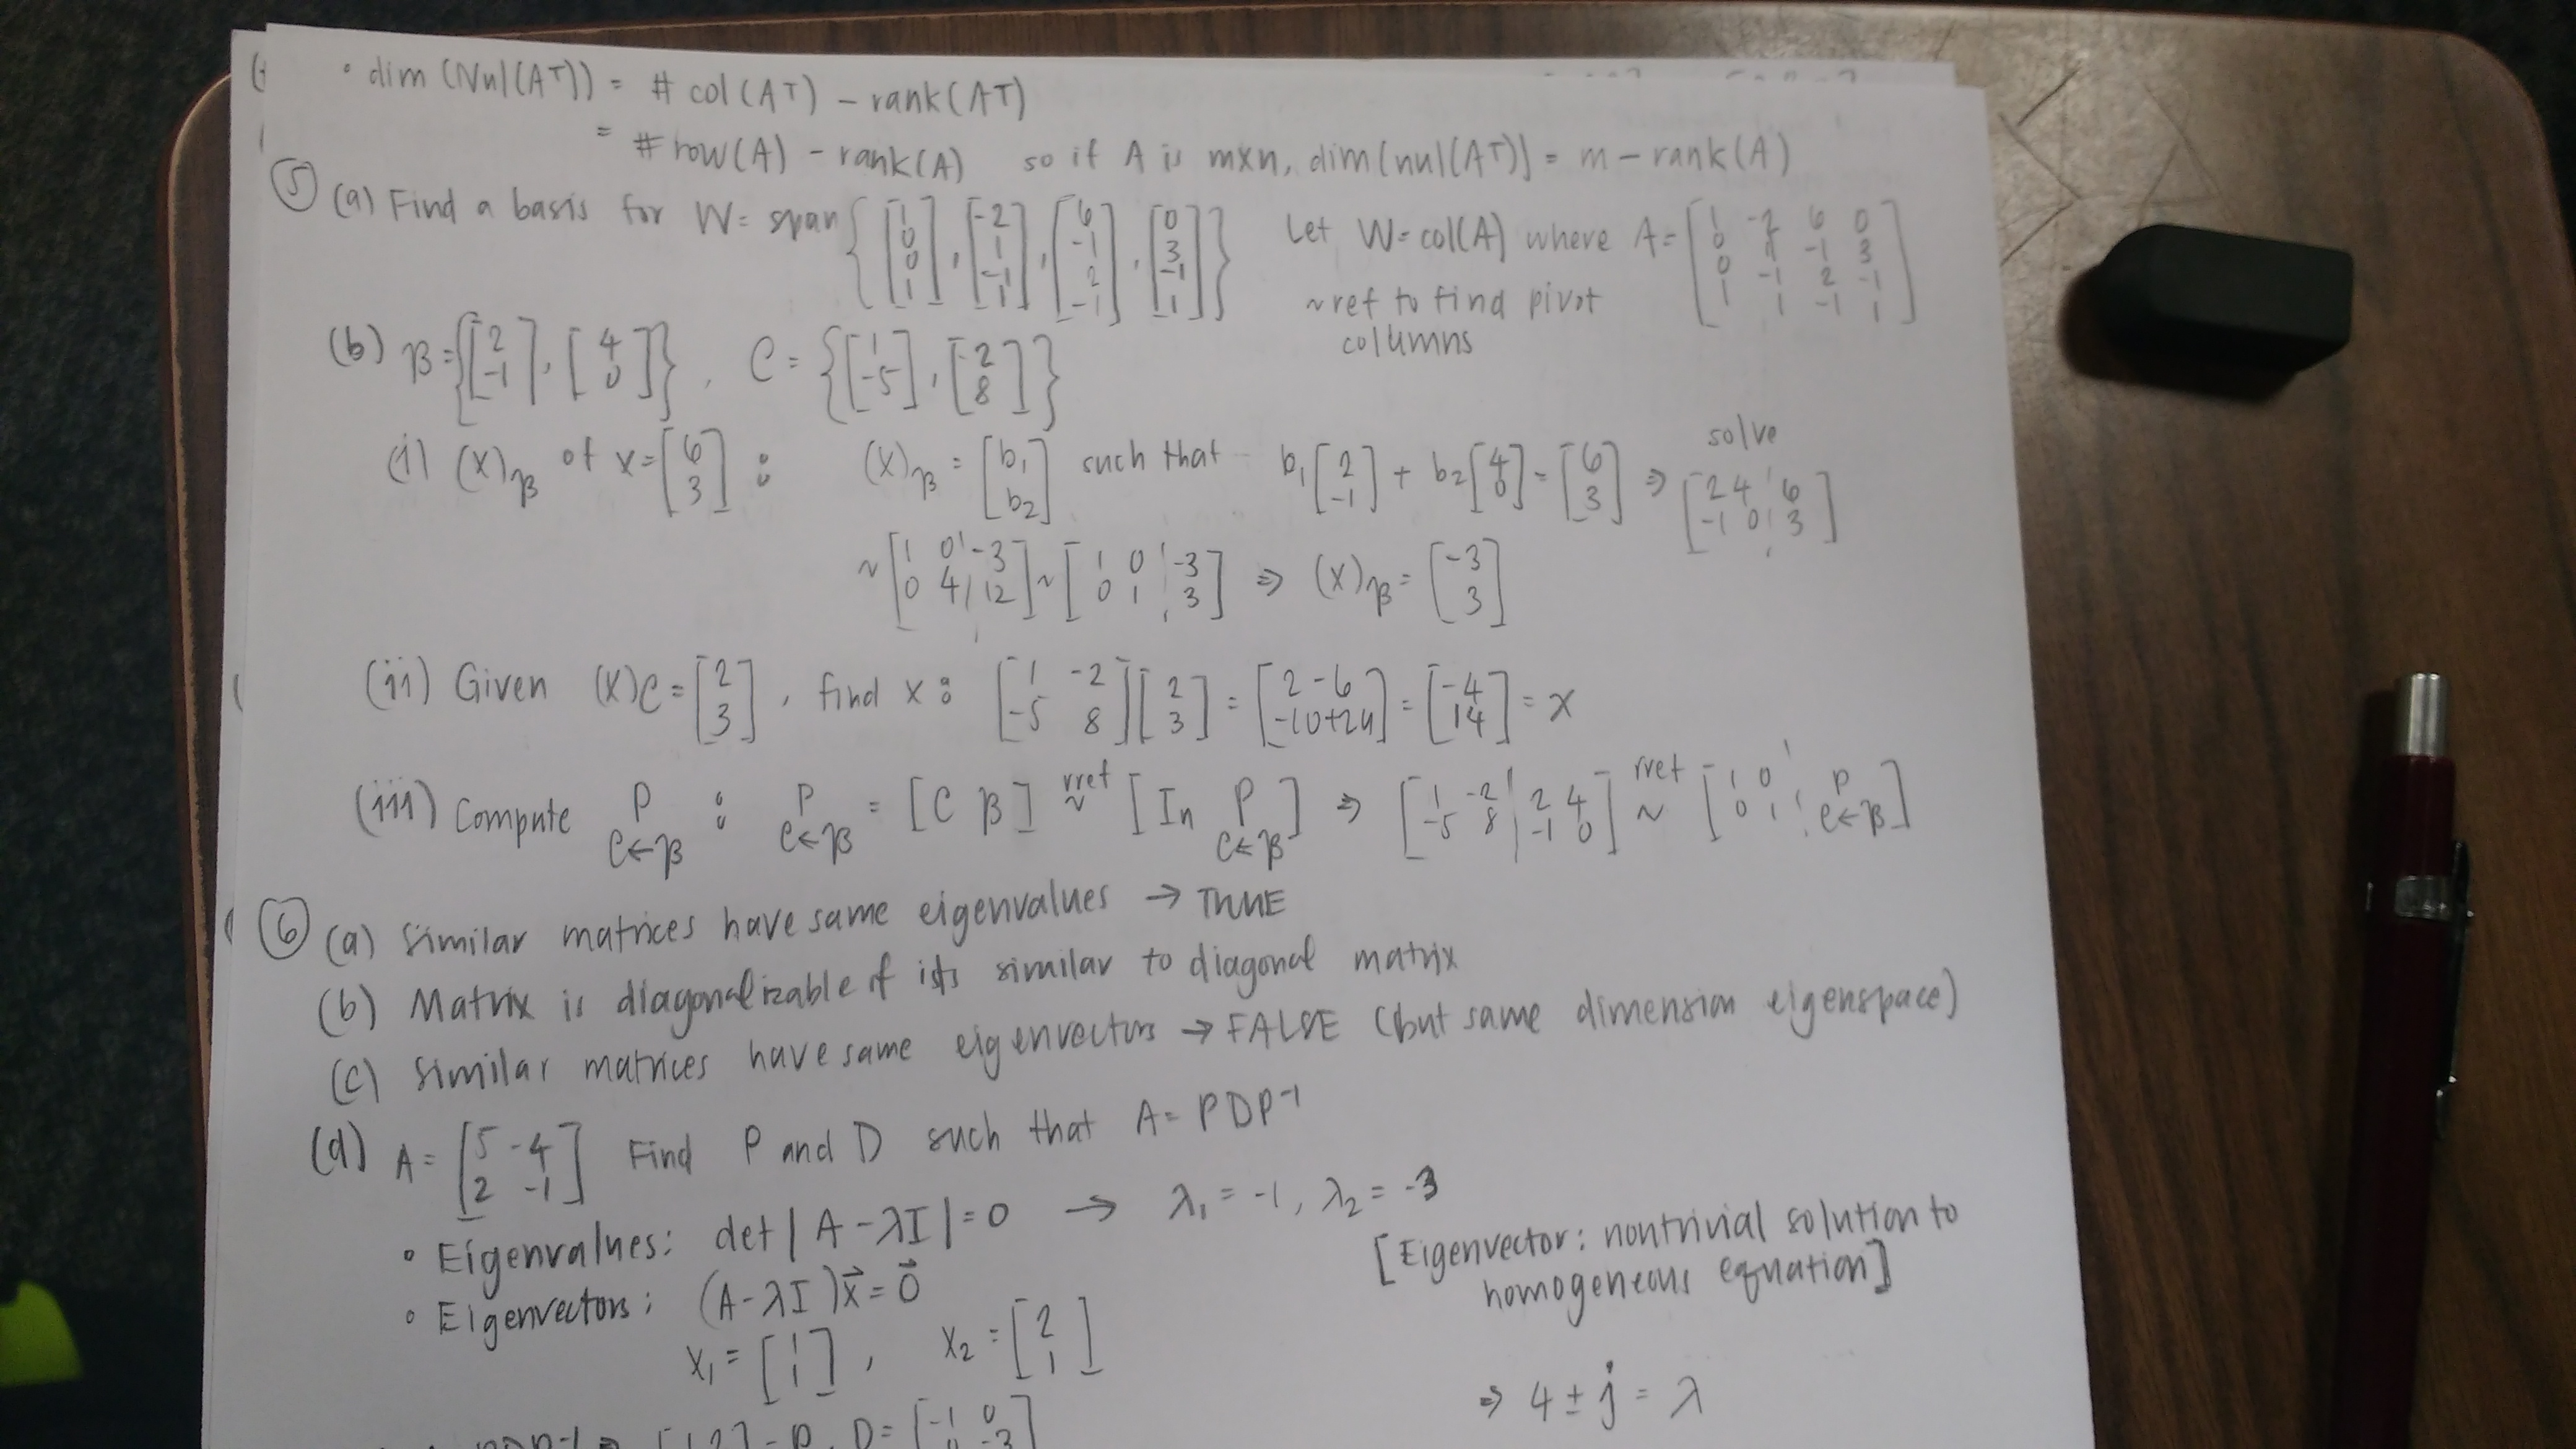 • dim (Nul(AT)) = # col(AT) - rank(AT)
= # row(A) - rank(A) so if A is mxn, dim(nul(AT)) = m - rank(A)
⑤ (a) Find a basis for W = span { [1 0 0 1], [-2 1 -1 1], [6 -1 2 -1], [0 3 -1 1] } Let W = col(A) where A = [1 -2 6 0; 0 1 -1 3; 0 -1 2 -1; 1 1 -1 1]
~ref to find pivot
columns
(b) β = { [2 -1], [4 0] }, C = { [1 -5], [-2 8] }
(i) (x)β of x = [6 3] : (x)β = [b1 b2] such that b1 [2 -1] + b2 [4 0] = [6 3] ⇒ solve [2 4 | 6; -1 0 | 3]
~ [1 0 | -3; 0 4 | 12] ~ [1 0 | -3; 0 1 | 3] ⇒ (x)β = [-3 3]
(ii) Given (x)C = [2 3], find x : [1 -2; -5 8] [2 3] = [2-6 -10+24] = [-4 14] = x
(iii) Compute P C←β : P C←β = [C β] rref ~ [In P C←β] ⇒ [1 -2 | 2 4; -5 8 | -1 0] rref ~ [1 0 | P; 0 1 | C←β]
⑥ (a) Similar matrices have same eigenvalues → TRUE
(b) Matrix is diagonalizable if it's similar to diagonal matrix
(c) Similar matrices have same eigenvectors → FALSE (but same dimension eigenspace)
(d) A = [5 -4; 2 -1] Find P and D such that A = PDP-1
• Eigenvalues: det | A - λI | = 0 → λ1 = -1, λ2 = -3
[Eigenvector: nontrivial solution to
homogeneous equation]
• Eigenvectors: (A - λI)x⃗ = 0⃗
x1 = [1 1], x2 = [2 1]
⇒ 4 ± j = λ
D = [-1 0; 0 -3]